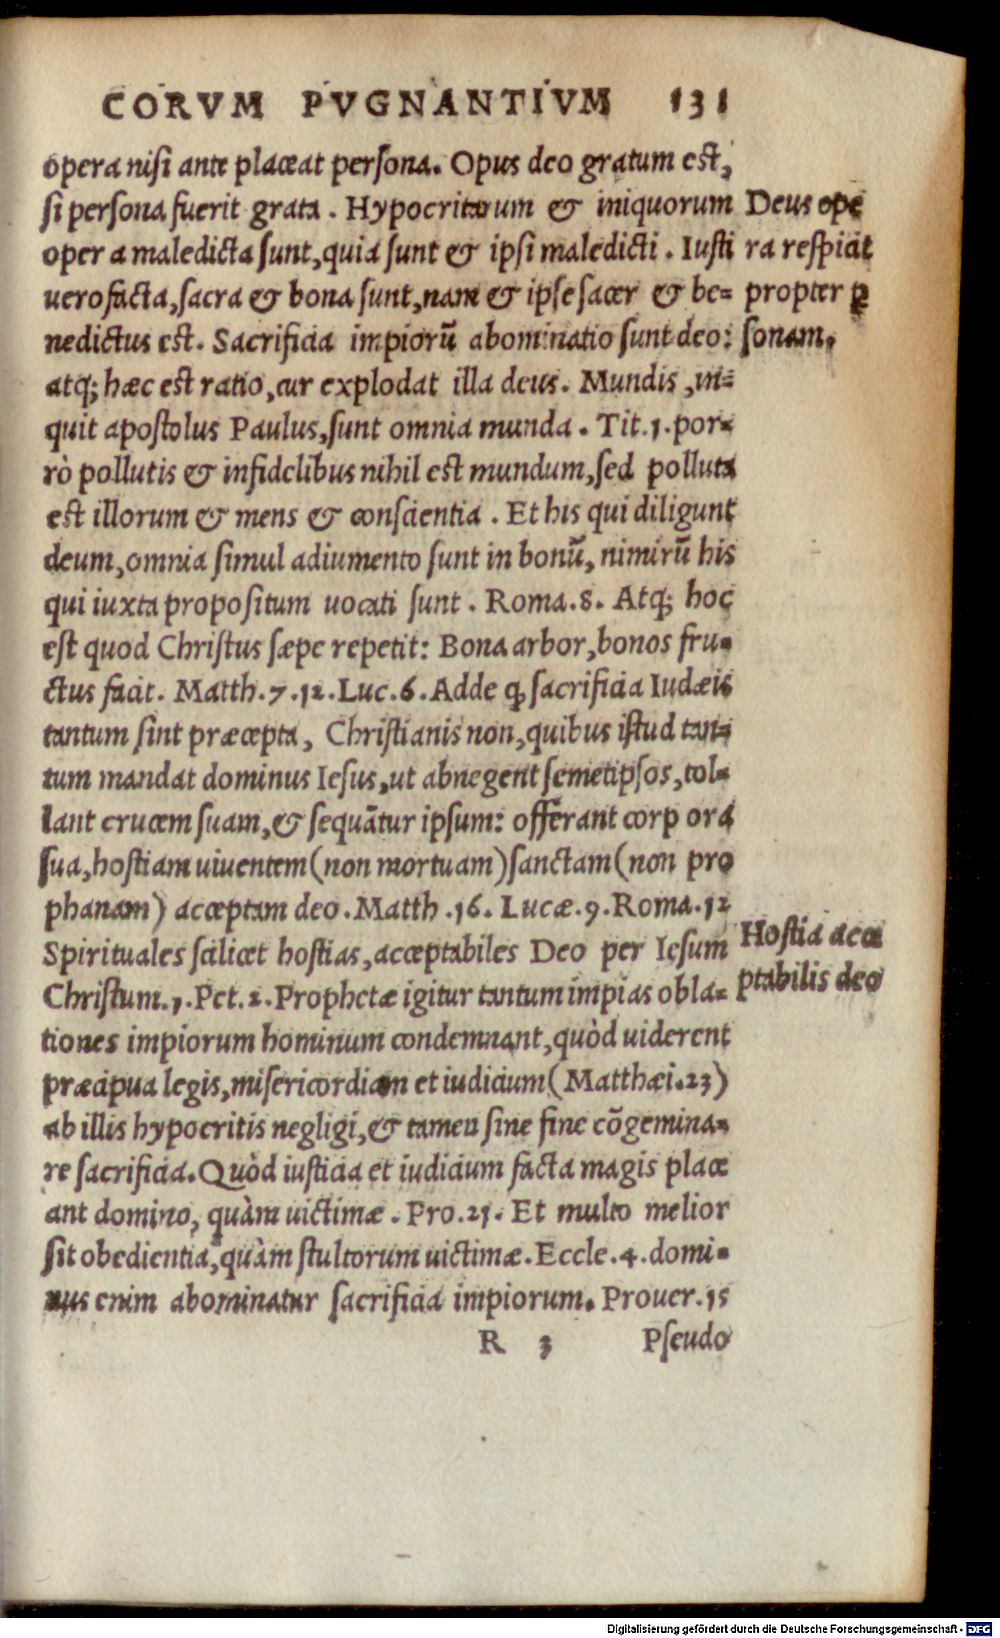 CORVM PVGNANTIVM 131
opera nisi ante placeat persona. Opus deo gratum est,
si persona fuerit grata. Hypocritarum & iniquorum
opera maledicta sunt, quia sunt & ipsi maledicti. Iusti
uero facta, sacra & bona sunt, nam & ipse sacer & be-
nedictus est. Sacrificia impiorū abominatio sunt deo:
atq; hæc est ratio, cur explodat illa deus. Mundis, in-
quit apostolus Paulus, sunt omnia munda. Tit. 1. por-
rò pollutis & infidelibus nihil est mundum, sed polluta
est illorum & mens & conscientia. Et his qui diligunt
deum, omnia simul adiumento sunt in bonū, nimirū his
qui iuxta propositum uocati sunt. Roma. 8. Atq; hoc
est quod Christus sæpe repetit: Bona arbor, bonos fru-
ctus facit. Matth. 7. 12. Luc. 6. Adde ꝙ sacrificia Iudæis
tantum sint præcepta, Christianis non, quibus istud tan-
tum mandat dominus Iesus, ut abnegent semetipsos, tol-
lant crucem suam, & sequātur ipsum: offerant corpora
sua, hostiam uiuentem (non mortuam) sanctam (non pro
phanam) acceptam deo. Matth. 16. Lucæ. 9. Roma. 12
Spirituales scilicet hostias, acceptabiles Deo per Iesum
Christum. 1. Pet. 2. Prophetæ igitur tantum impias obla-
tiones impiorum hominum condemnant, quòd uiderent
præcipua legis, misericordiam et iudicium (Matthæi. 23)
ab illis hypocritis negligi, & tamen sine fine cōgemina-
re sacrificia. Quòd iusticia et iudicium facta magis place
ant domino, quàm uictimæ. Pro. 21. Et multo melior
sit obedientia, quàm stultorum uictimæ. Eccle. 4. domi-
nus enim abominatur sacrificia impiorum. Prouer. 15
R 3 Pseudo
Deus ope
ra respicit
propter ꝑ
sonam.
Hostia acce
ptabilis deo
Digitalisierung gefördert durch die Deutsche Forschungsgemeinschaft - DFG